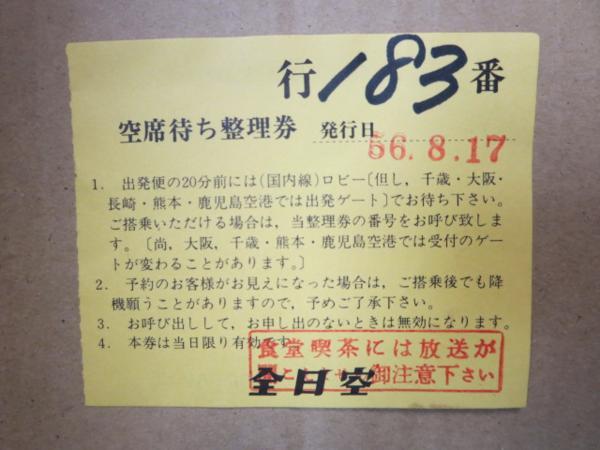 行183番
空席待ち整理券 発行日 56.8.17
1. 出発便の20分前には(国内線)ロビー〔但し,千歳・大阪・
長崎・熊本・鹿児島空港では出発ゲート〕でお待ち下さい。
ご搭乗いただける場合は,当整理券の番号をお呼び致しま
す。〔尚,大阪,千歳・熊本・鹿児島空港では受付のゲー
トが変わることがあります。〕
2. 予約のお客様がお見えになった場合は,ご搭乗後でも降
機願うことがありますので,予めご了承下さい。
3. お呼び出しして,お申し出のないときは無効になります。
4. 本券は当日限り有効です。
食堂喫茶には放送が
御注意下さい
全日空